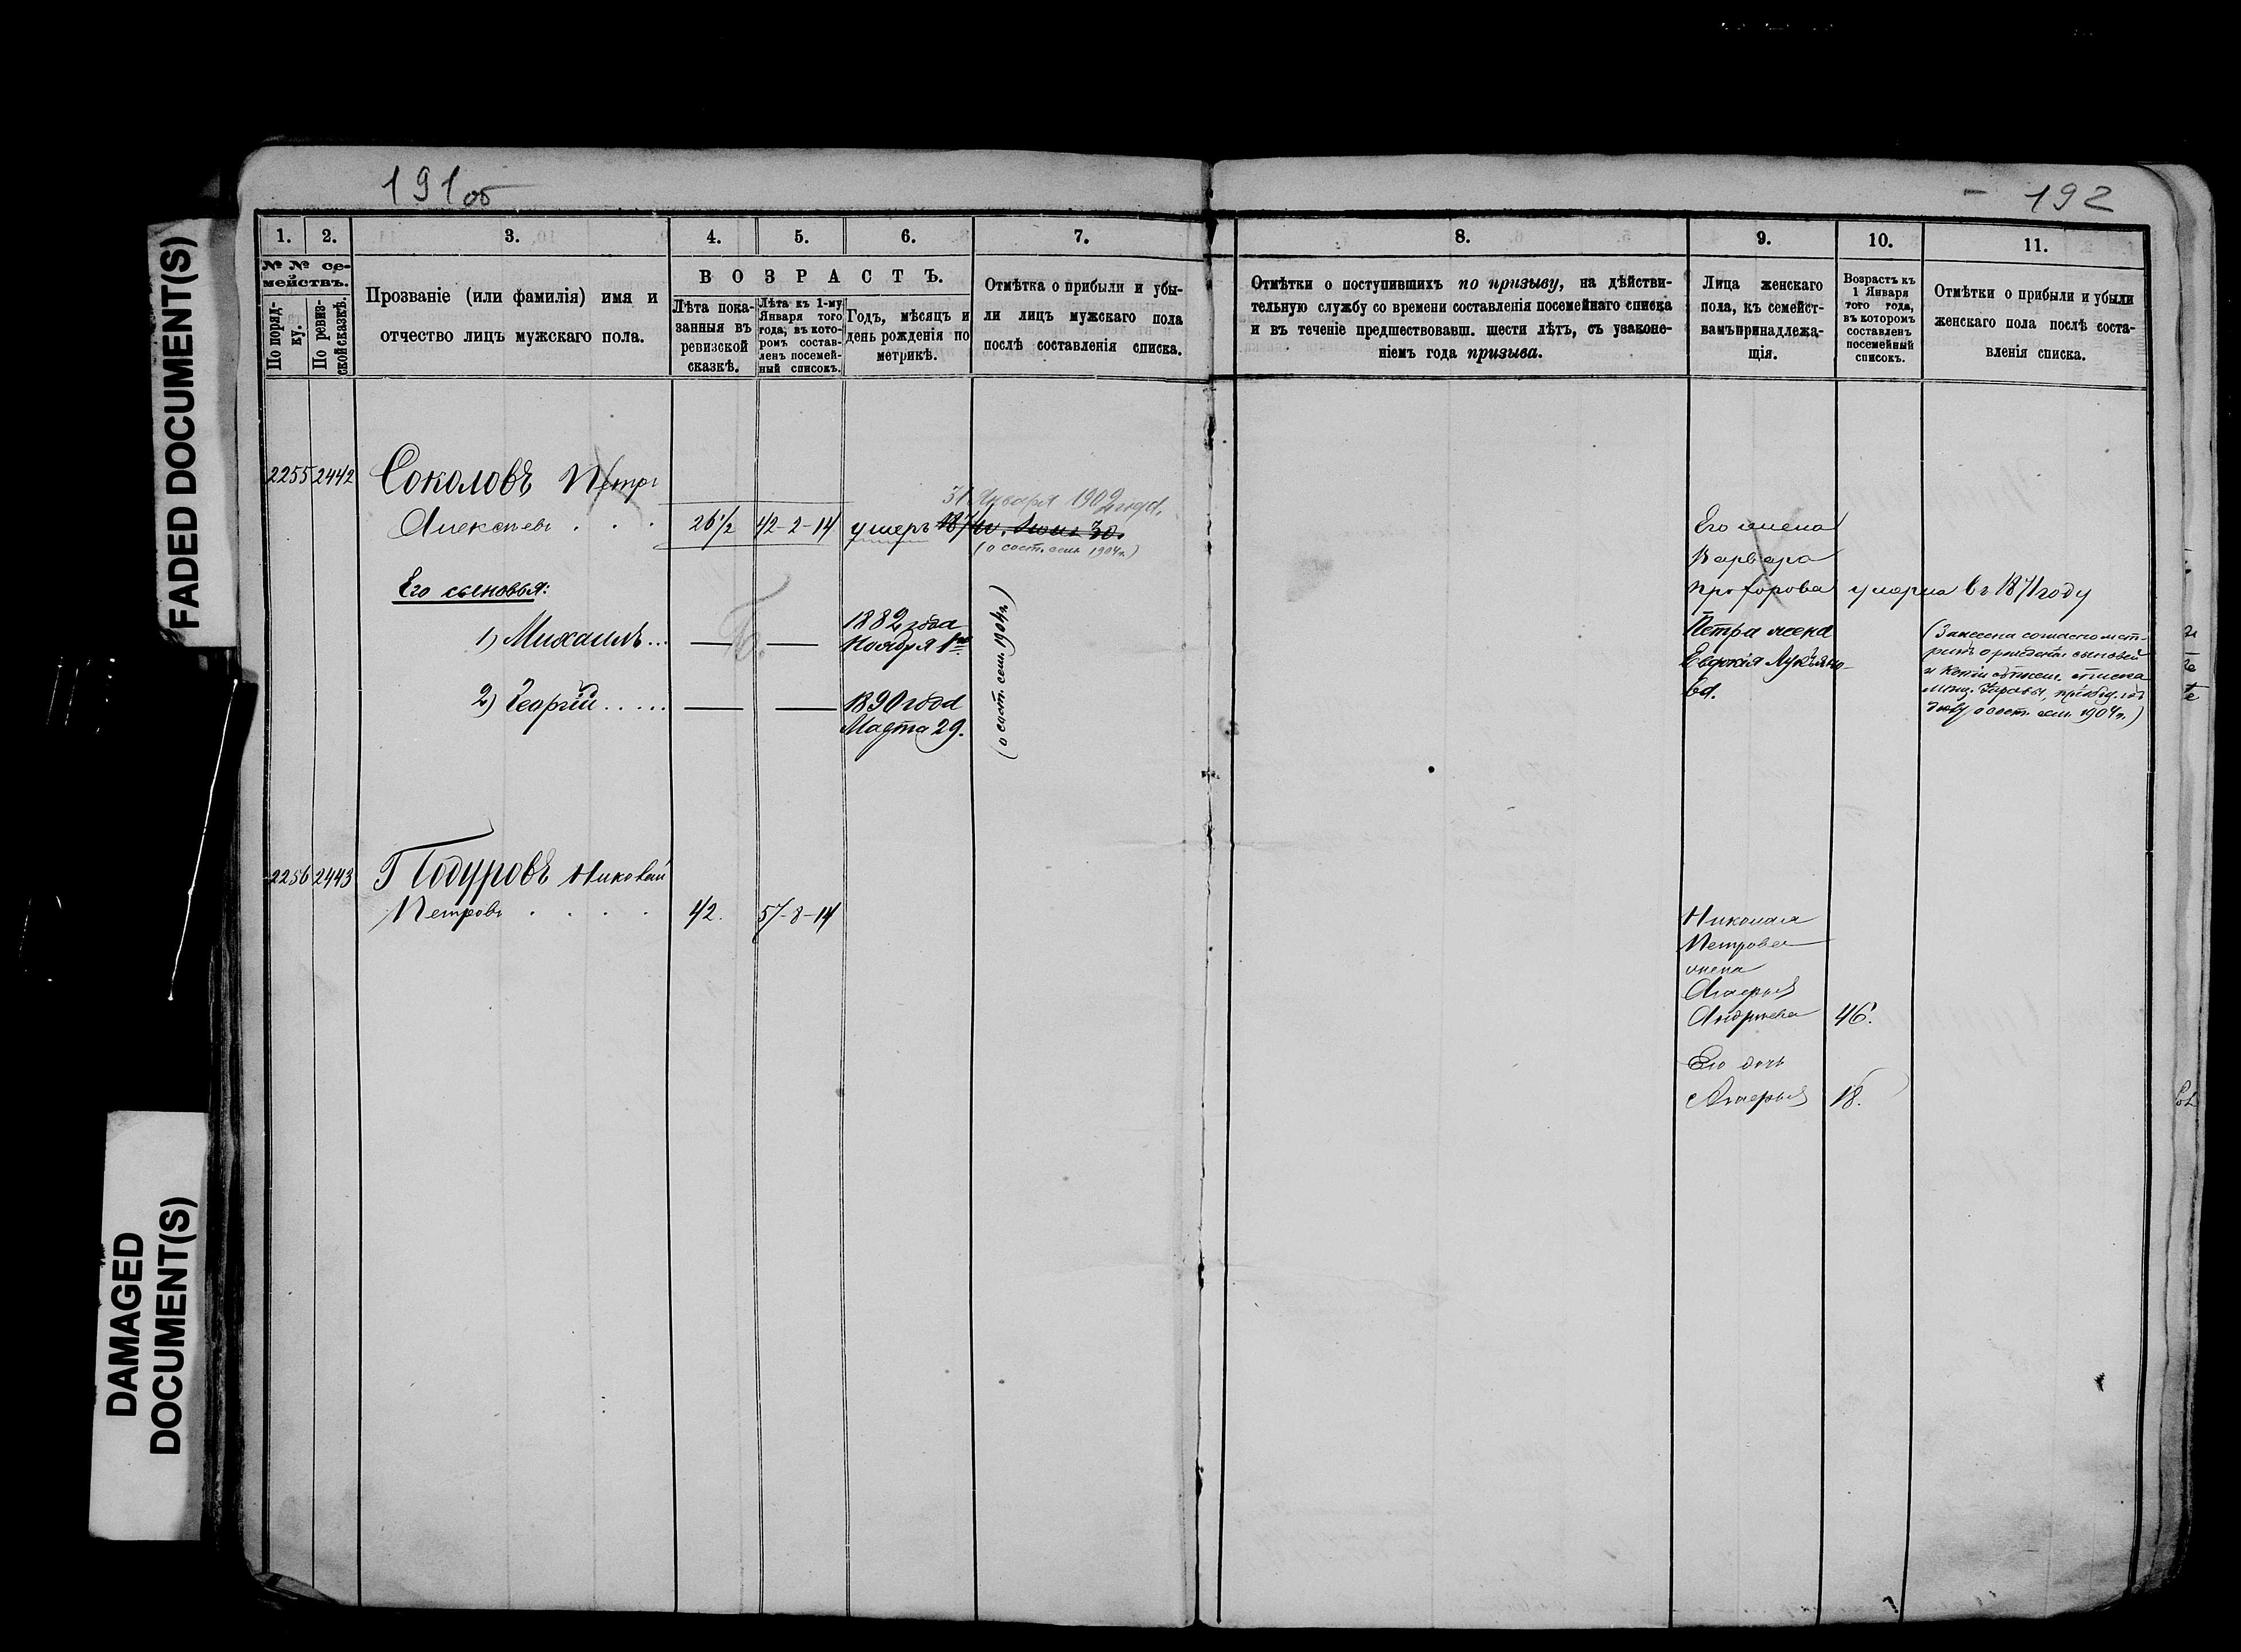 191об
192
1.
2.
3.
4.
5.
6.
7.
8.
9.
10.
11.
№ № се-
мействъ.
По поряд-
ку.
По ревиз-
ской сказкѣ.
Прозваніе (или фамилія) имя и
отчество лицъ мужскаго пола.
ВОЗРАСТЪ.
Лѣта пока-
занныя въ
ревизской
сказкѣ.
Лѣта къ 1-му
Января того
года, въ кото-
ромъ состав-
ленъ посемей-
ный списокъ.
Годъ, мѣсяцъ и
день рожденія по
метрикѣ.
Отмѣтка о прибыли и убы-
ли лицъ мужскаго пола
послѣ составленія списка.
Отмѣтки о поступившихъ по призыву, на дѣйстви-
тельную службу со времени составленія посемейнаго списка
и въ теченіе предшествовавш. шести лѣтъ, съ узаконе-
ніемъ года призыва.
Лица женскаго
пола, къ семейст-
вамъ принадлежа-
щія.
Возрастъ къ
1 Января
того года,
въ которомъ
составленъ
посемейный
списокъ.
Отмѣтки о прибыли и убыли
женскаго пола послѣ соста-
вленія списка.
2255 2442 Соколовъ Петръ
31 Января 1902 года.
Алексѣевъ . . . 26½ 42-2-14 умеръ
(о сост. сем. 1904 г.)
Его сыновья:
1) Михаилъ... — —
1882 года
Ноября 8го
2) Георгій ..... — —
1890 года
Марта 29.
(о сост. сем. 1904 г.)
Его жена
Варвара
Прохорова умерла въ 1871 году
Петра жена
Евдокія Лукьяно-
ва.
(Занесена согласно мет-
рикъ о рожденіи сыновей
и
дѣлу о сост. сем. 1904 г.)
2256 2443 Подуровъ Николай
Петровъ . . . . 42. 57-8-14
Николая
Петрова
жена
Андреева 46.
Его дочь
18.
FADED DOCUMENT(S)
DAMAGED
DOCUMENT(S)